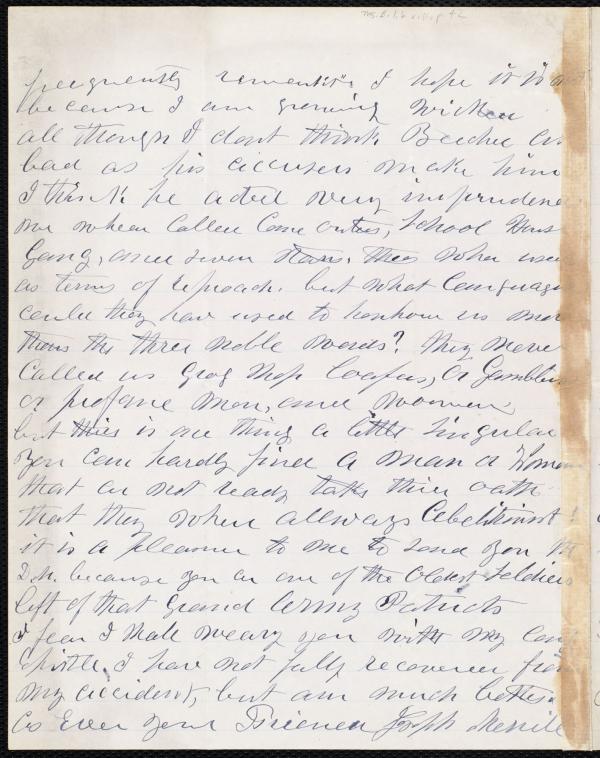 frequently I hope it is not
because I am growing wicked
all though I dont think Beecher as
bad as his accusers make him
I think he acted very imprudend
we wher called Come outers, School Hous
Gang, and seven stars. thes wher used
as terms of reproach. but what language
could they have used to honhour us mor
than the three noble words? they never
called us grog shop loafers, or Gamblers
or profane men, and women,
but thies is one thing a little singular
you can hardly find a man or Woman
that ar not ready take thier oath
that they wher allways Abelitionist!
it is a pleasure to me to send you the
because you ar one of the oldest soldiers
left of that Grand Army Patriots
I fear I shall weary you with my long
I have not fully recovered from
my accident, but am much better.
As Ever your Friened Joseph Merrill